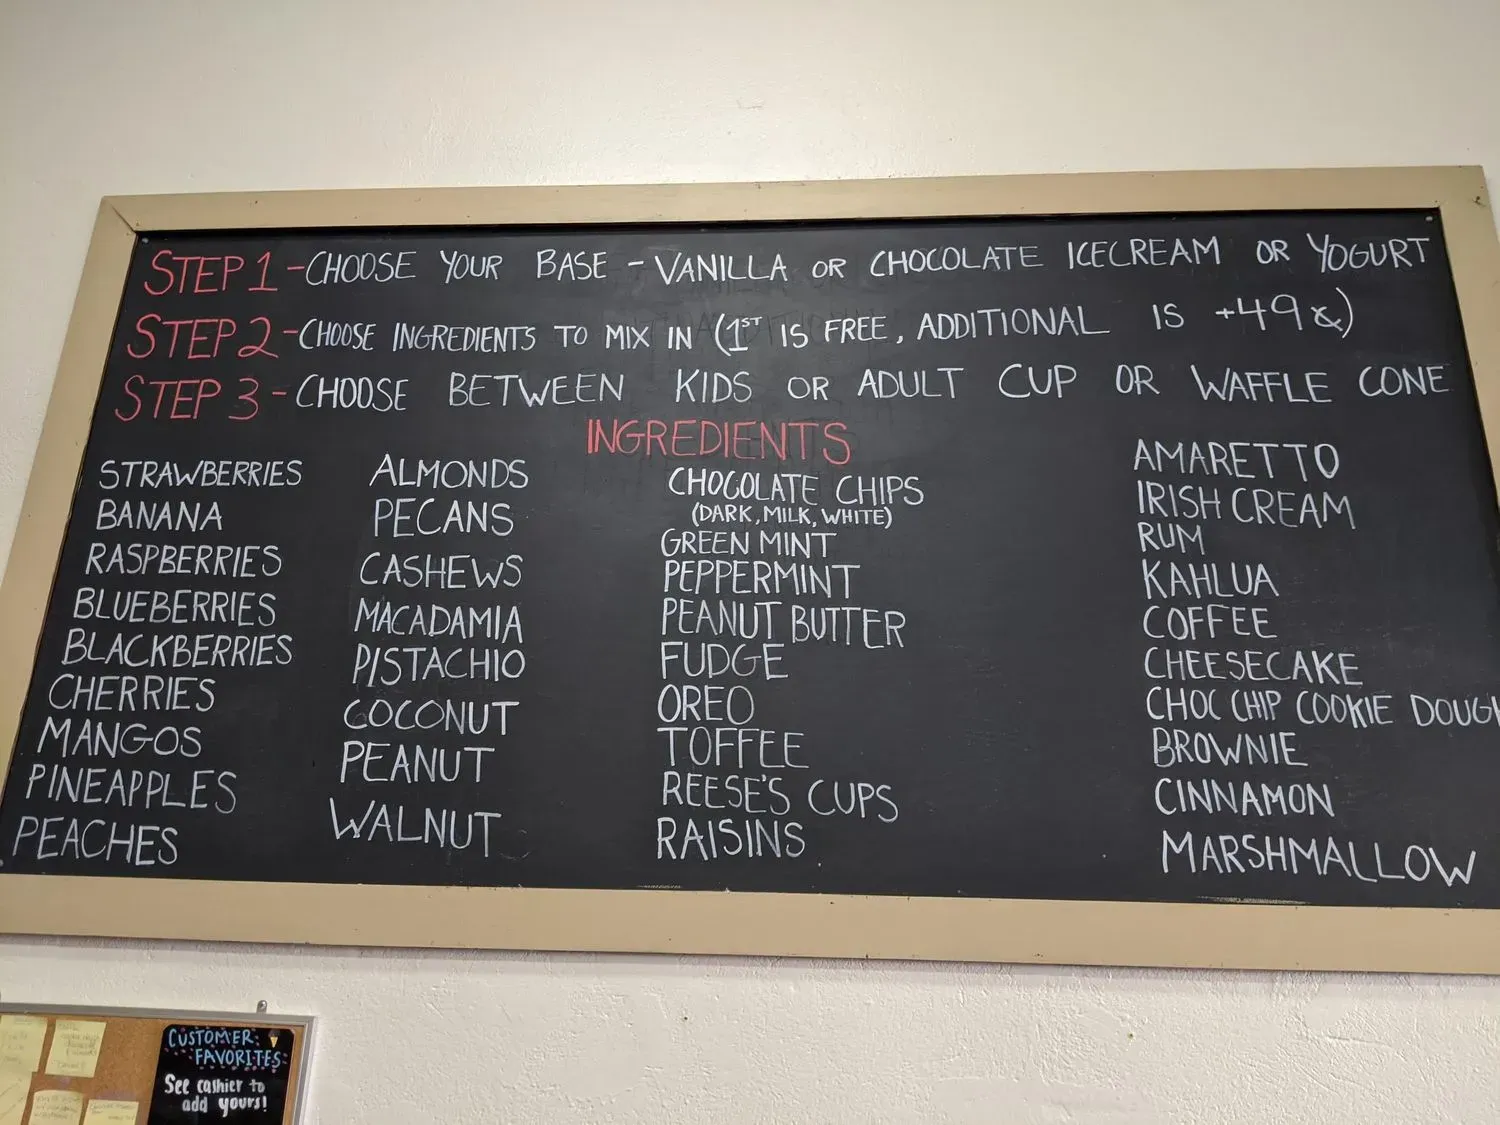 STEP 1 - CHOOSE YOUR BASE - VANILLA OR CHOCOLATE ICECREAM OR YOGURT
STEP 2 - CHOOSE INGREDIENTS TO MIX IN (1ST IS FREE, ADDITIONAL IS +49¢)
STEP 3 - CHOOSE BETWEEN KIDS OR ADULT CUP OR WAFFLE CONE
INGREDIENTS
STRAWBERRIES
BANANA
RASPBERRIES
BLUEBERRIES
BLACKBERRIES
CHERRIES
MANGOS
PINEAPPLES
PEACHES
ALMONDS
PECANS
CASHEWS
MACADAMIA
PISTACHIO
COCONUT
PEANUT
WALNUT
CHOCOLATE CHIPS
(DARK, MILK, WHITE)
GREEN MINT
PEPPERMINT
PEANUT BUTTER
FUDGE
OREO
TOFFEE
REESE'S CUPS
RAISINS
AMARETTO
IRISH CREAM
RUM
KAHLUA
COFFEE
CHEESECAKE
CHOC CHIP COOKIE DOUGH
BROWNIE
CINNAMON
MARSHMALLOW
CUSTOMER
FAVORITES
See cashier to
add yours!